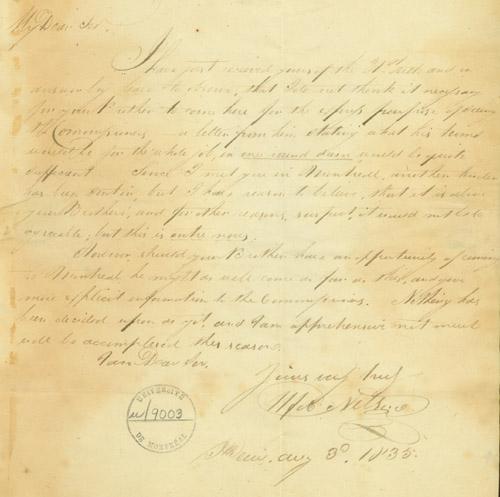 My Dear Sir,
I have just received yours of the 31st and in
answer beg leave to observe, that I do not think it necessary
for your Brother to come here for the express purpose of seeing
the Commissioners — a letter from him stating what his terms
would be for the whole job, in one round sum would be quite
sufficient. Since I met you in Montreal, another
has been sent in, but I have reason to believe, that it is
your Brothers, and for other reasons, suspect, it would not be
agreeable, but this is entre nous.
However should your Brother have an opportunity of coming
to Montreal he might as well come as far as this, and give
more explicit information to the Commissioners. Nothing has
been decided upon as yet, and I am apprehensive not much
will be accomplished this season.
I am Dear Sir,
Yours very truly
Nelson
Aug 3d. 1835.
UNIVERSITÉ
9003
DE MONTRÉAL